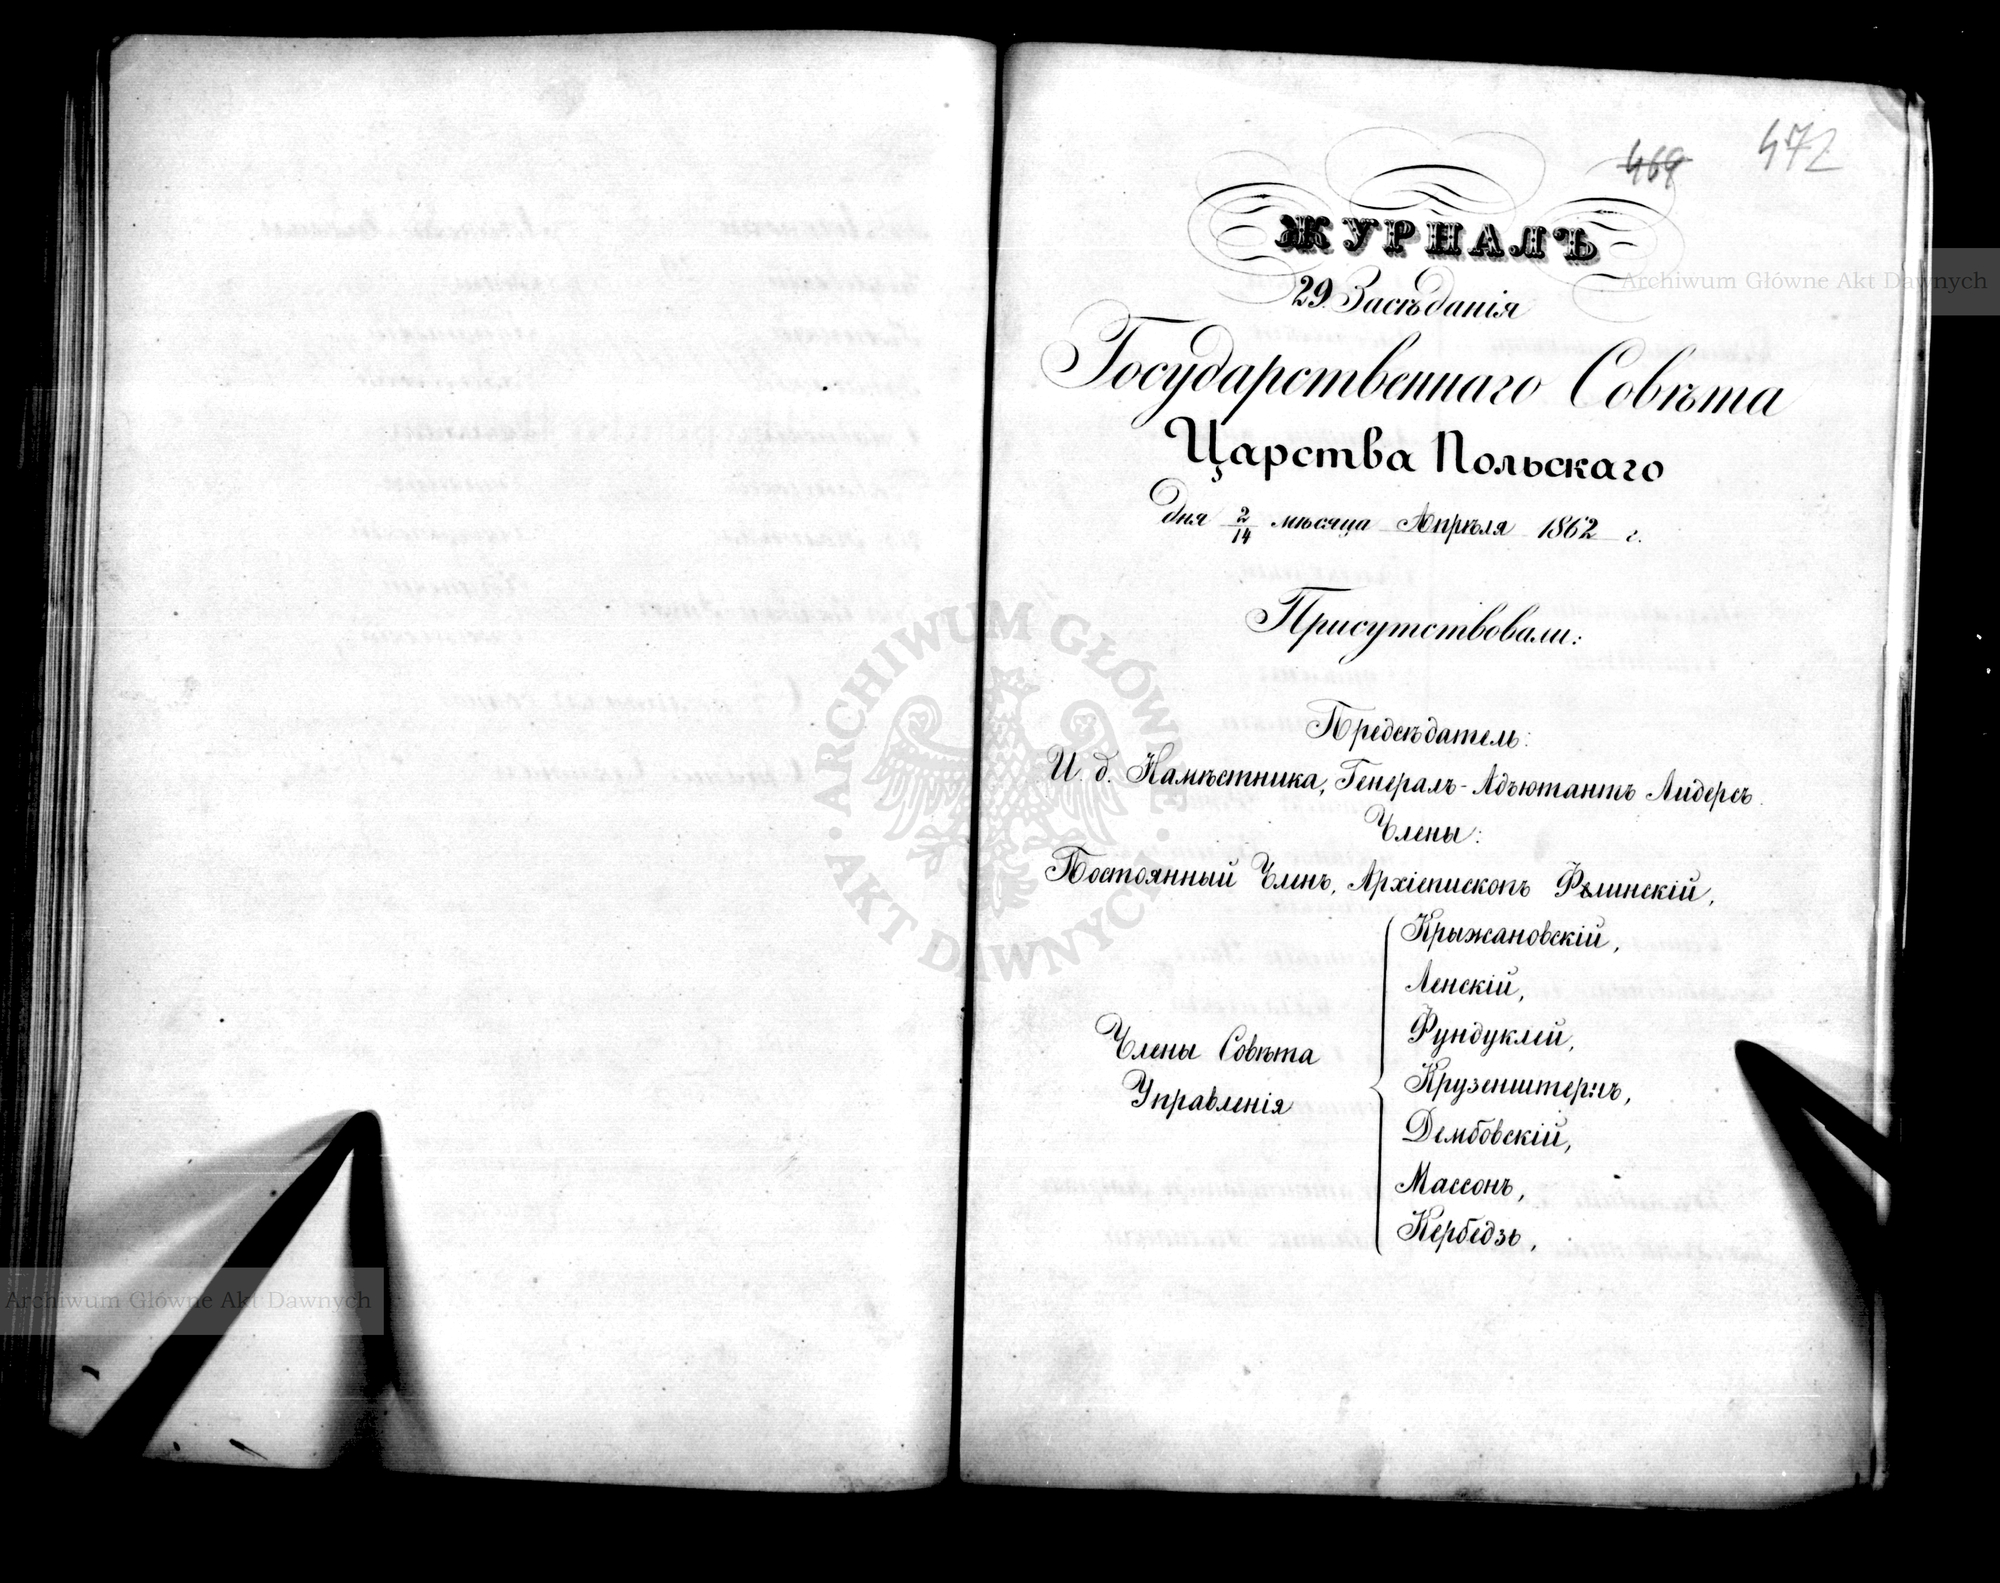 469 472
ЖУРНАЛЪ
29. Засѣданія
Государственнаго Совѣта
Царства Польскаго
дня 2/14 мѣсяца Апрѣля 1862 г.
Присутствовали:
Предсѣдатель:
И. д. Намѣстника, Генералъ-Адъютантъ Лидерсъ.
Члены:
Постоянный Членъ, Архіепископъ Фелинскій,
Члены Совѣта
Управленія
Крыжановскій,
Ленскій,
Фундуклей,
Крузенштернъ,
Дембовскій,
Массонъ,
Кербедзь,
Archiwum Główne Akt Dawnych
ARCHIWUM GŁÓWNE
AKT DAWNYCH
Archiwum Główne Akt Dawnych